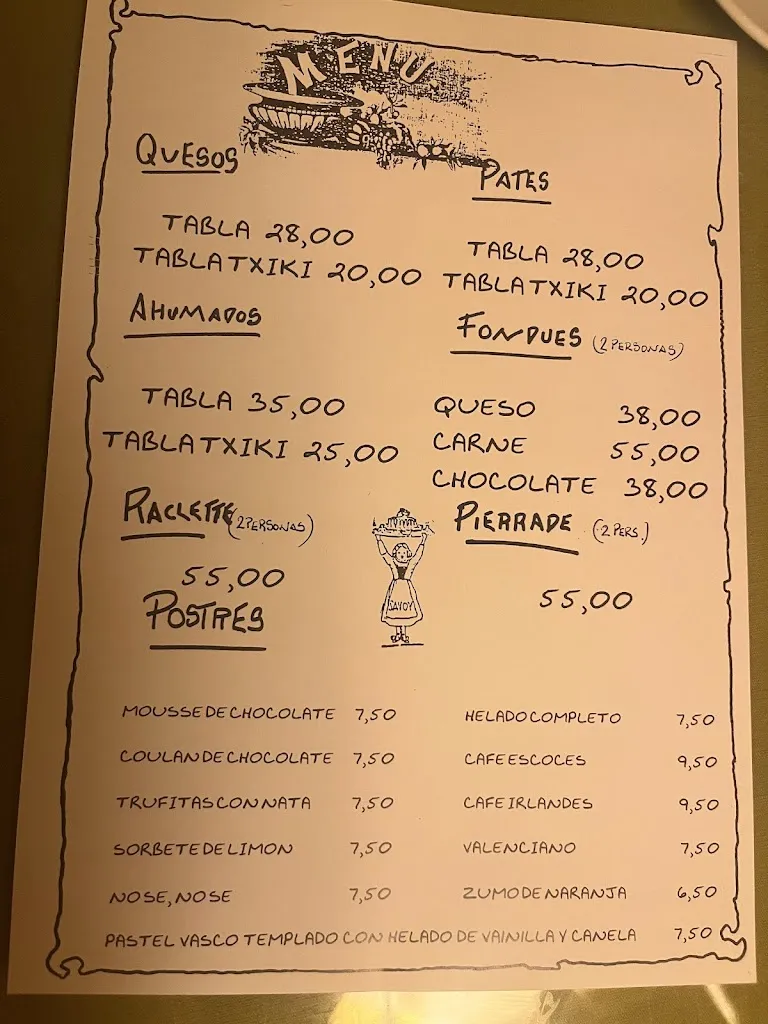 MENU
QUESOS
TABLA 28,00
TABLA TXIKI 20,00
PATES
TABLA 28,00
TABLA TXIKI 20,00
AHUMADOS
TABLA 35,00
TABLA TXIKI 25,00
FONDUES (2 PERSONAS)
QUESO 38,00
CARNE 55,00
CHOCOLATE 38,00
RACLETTE (2 PERSONAS)
55,00
SAVOY
PIERRADE (2 PERS.)
55,00
POSTRES
MOUSSE DE CHOCOLATE 7,50
COULAN DE CHOCOLATE 7,50
TRUFITAS CON NATA 7,50
SORBETE DE LIMON 7,50
NO SE, NO SE 7,50
HELADO COMPLETO 7,50
CAFE ESCOCES 9,50
CAFE IRLANDES 9,50
VALENCIANO 7,50
ZUMO DE NARANJA 6,50
PASTEL VASCO TEMPLADO CON HELADO DE VAINILLA Y CANELA 7,50